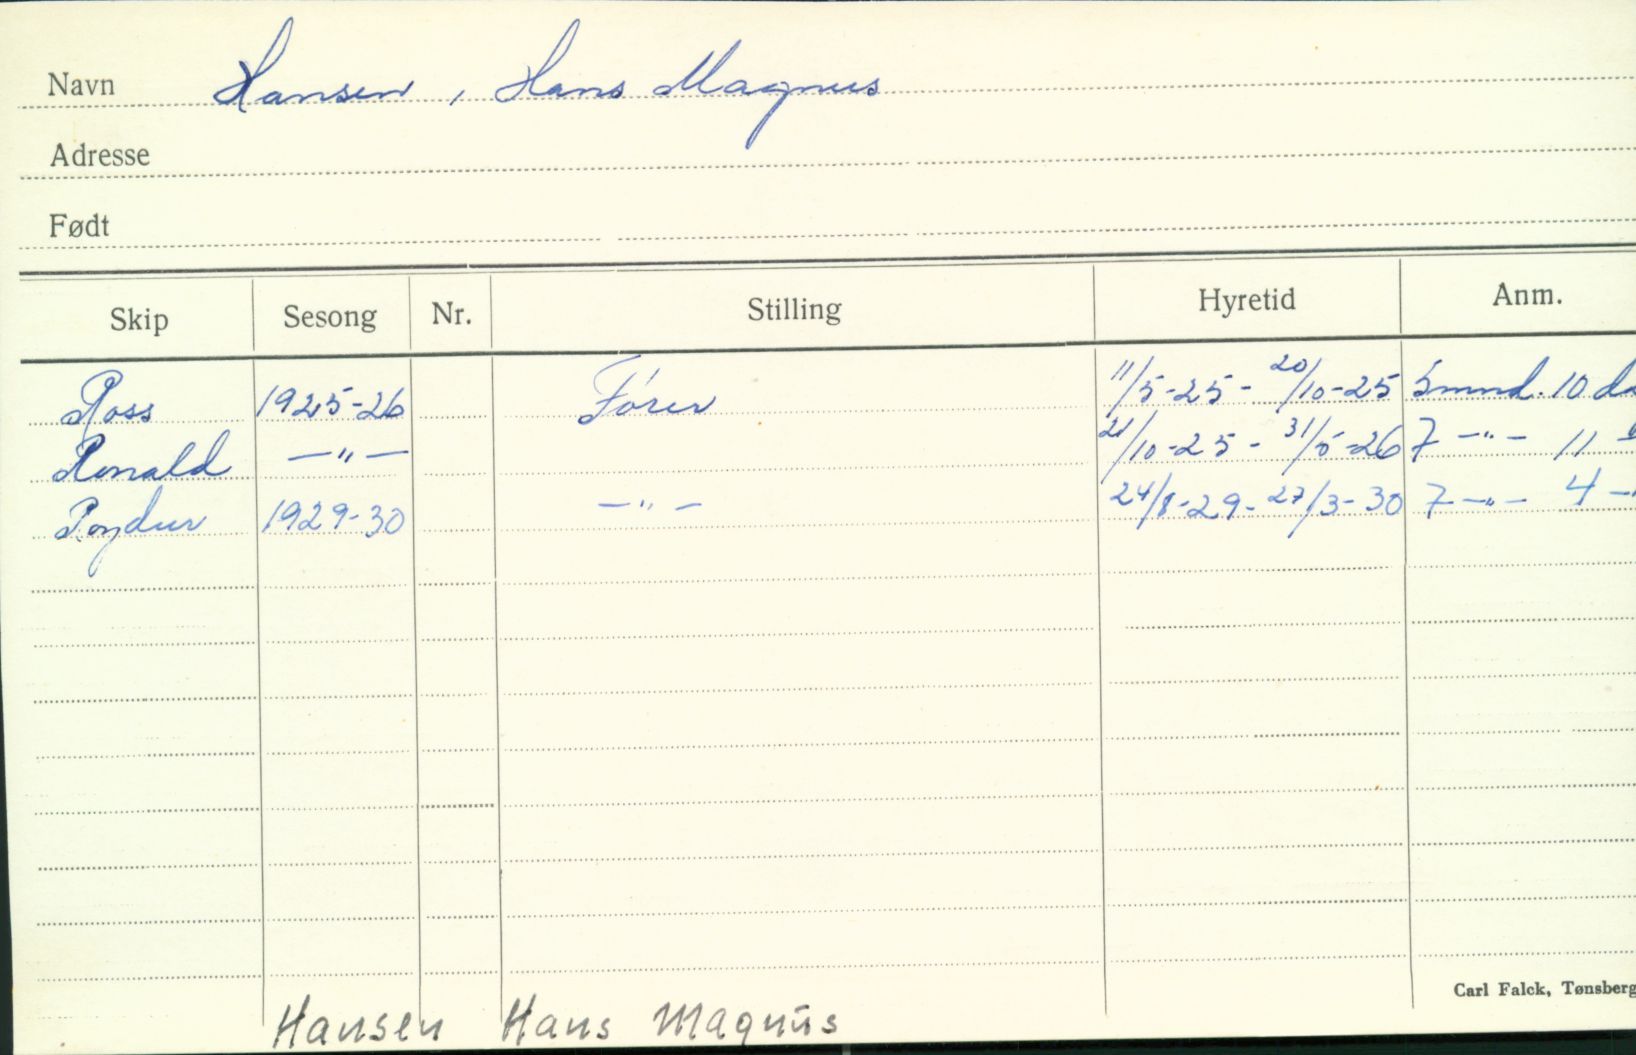 Navn Hansen, Hans Magnus
Adresse
Født
Skip Sesong Nr. Stilling Hyretid Anm.
Ross 1925-26 Fører 11/5-25 - 20/10-25 5 mnd. 10 da
Ronald —"— 21/10-25 - 31/5-26 7 —"— 11
1929-30 —"— 24/8-29 - 27/3-30 7 —"— 4 —"
Carl Falck, Tønsberg
Hansen Hans Magnus